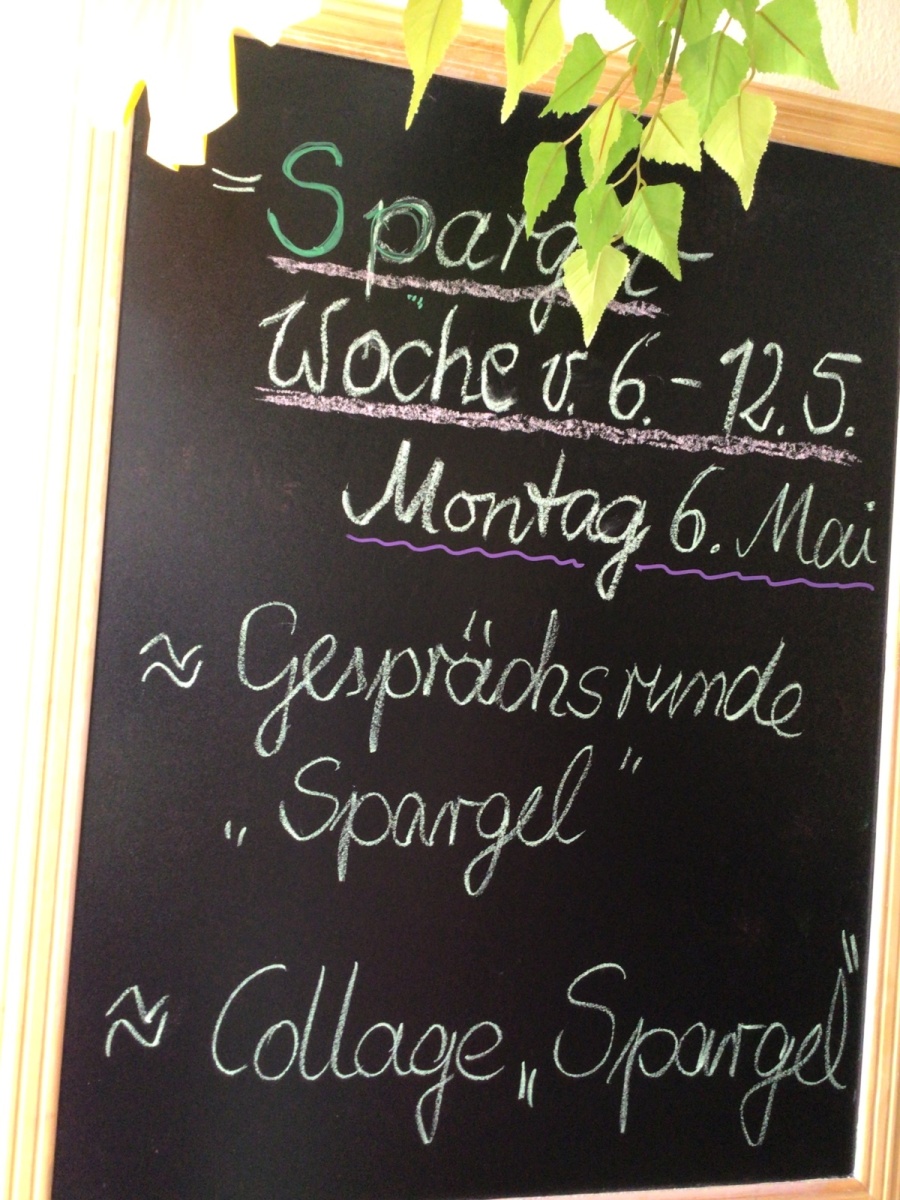 = Spargel-
Woche v. 6.-12.5.
Montag 6. Mai
≈ Gesprächsrunde
„Spargel"
≈ Collage „Spargel"